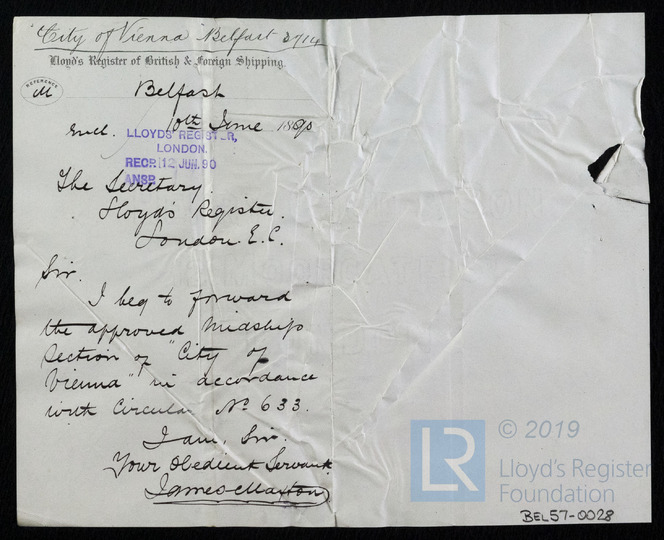 City of Vienna Belfast 2714
Lloyd's Register of British & Foreign Shipping.
REFERENCE
M
Belfast
10th June 1890
Encl.
LLOYDS REGISTER,
LONDON.
RECP. 12 JUN. 90
ANSP
The Secretary.
Lloyd's Register.
London E.C.
Sir.
I beg to forward
the approved Midship
Section of "City of
Vienna" in accordance
with Circular No 633.
I am, Sir.
Your Obedient Servant
James Maxton
LR
© 2019
Lloyd's Register
Foundation
BEL57-0028